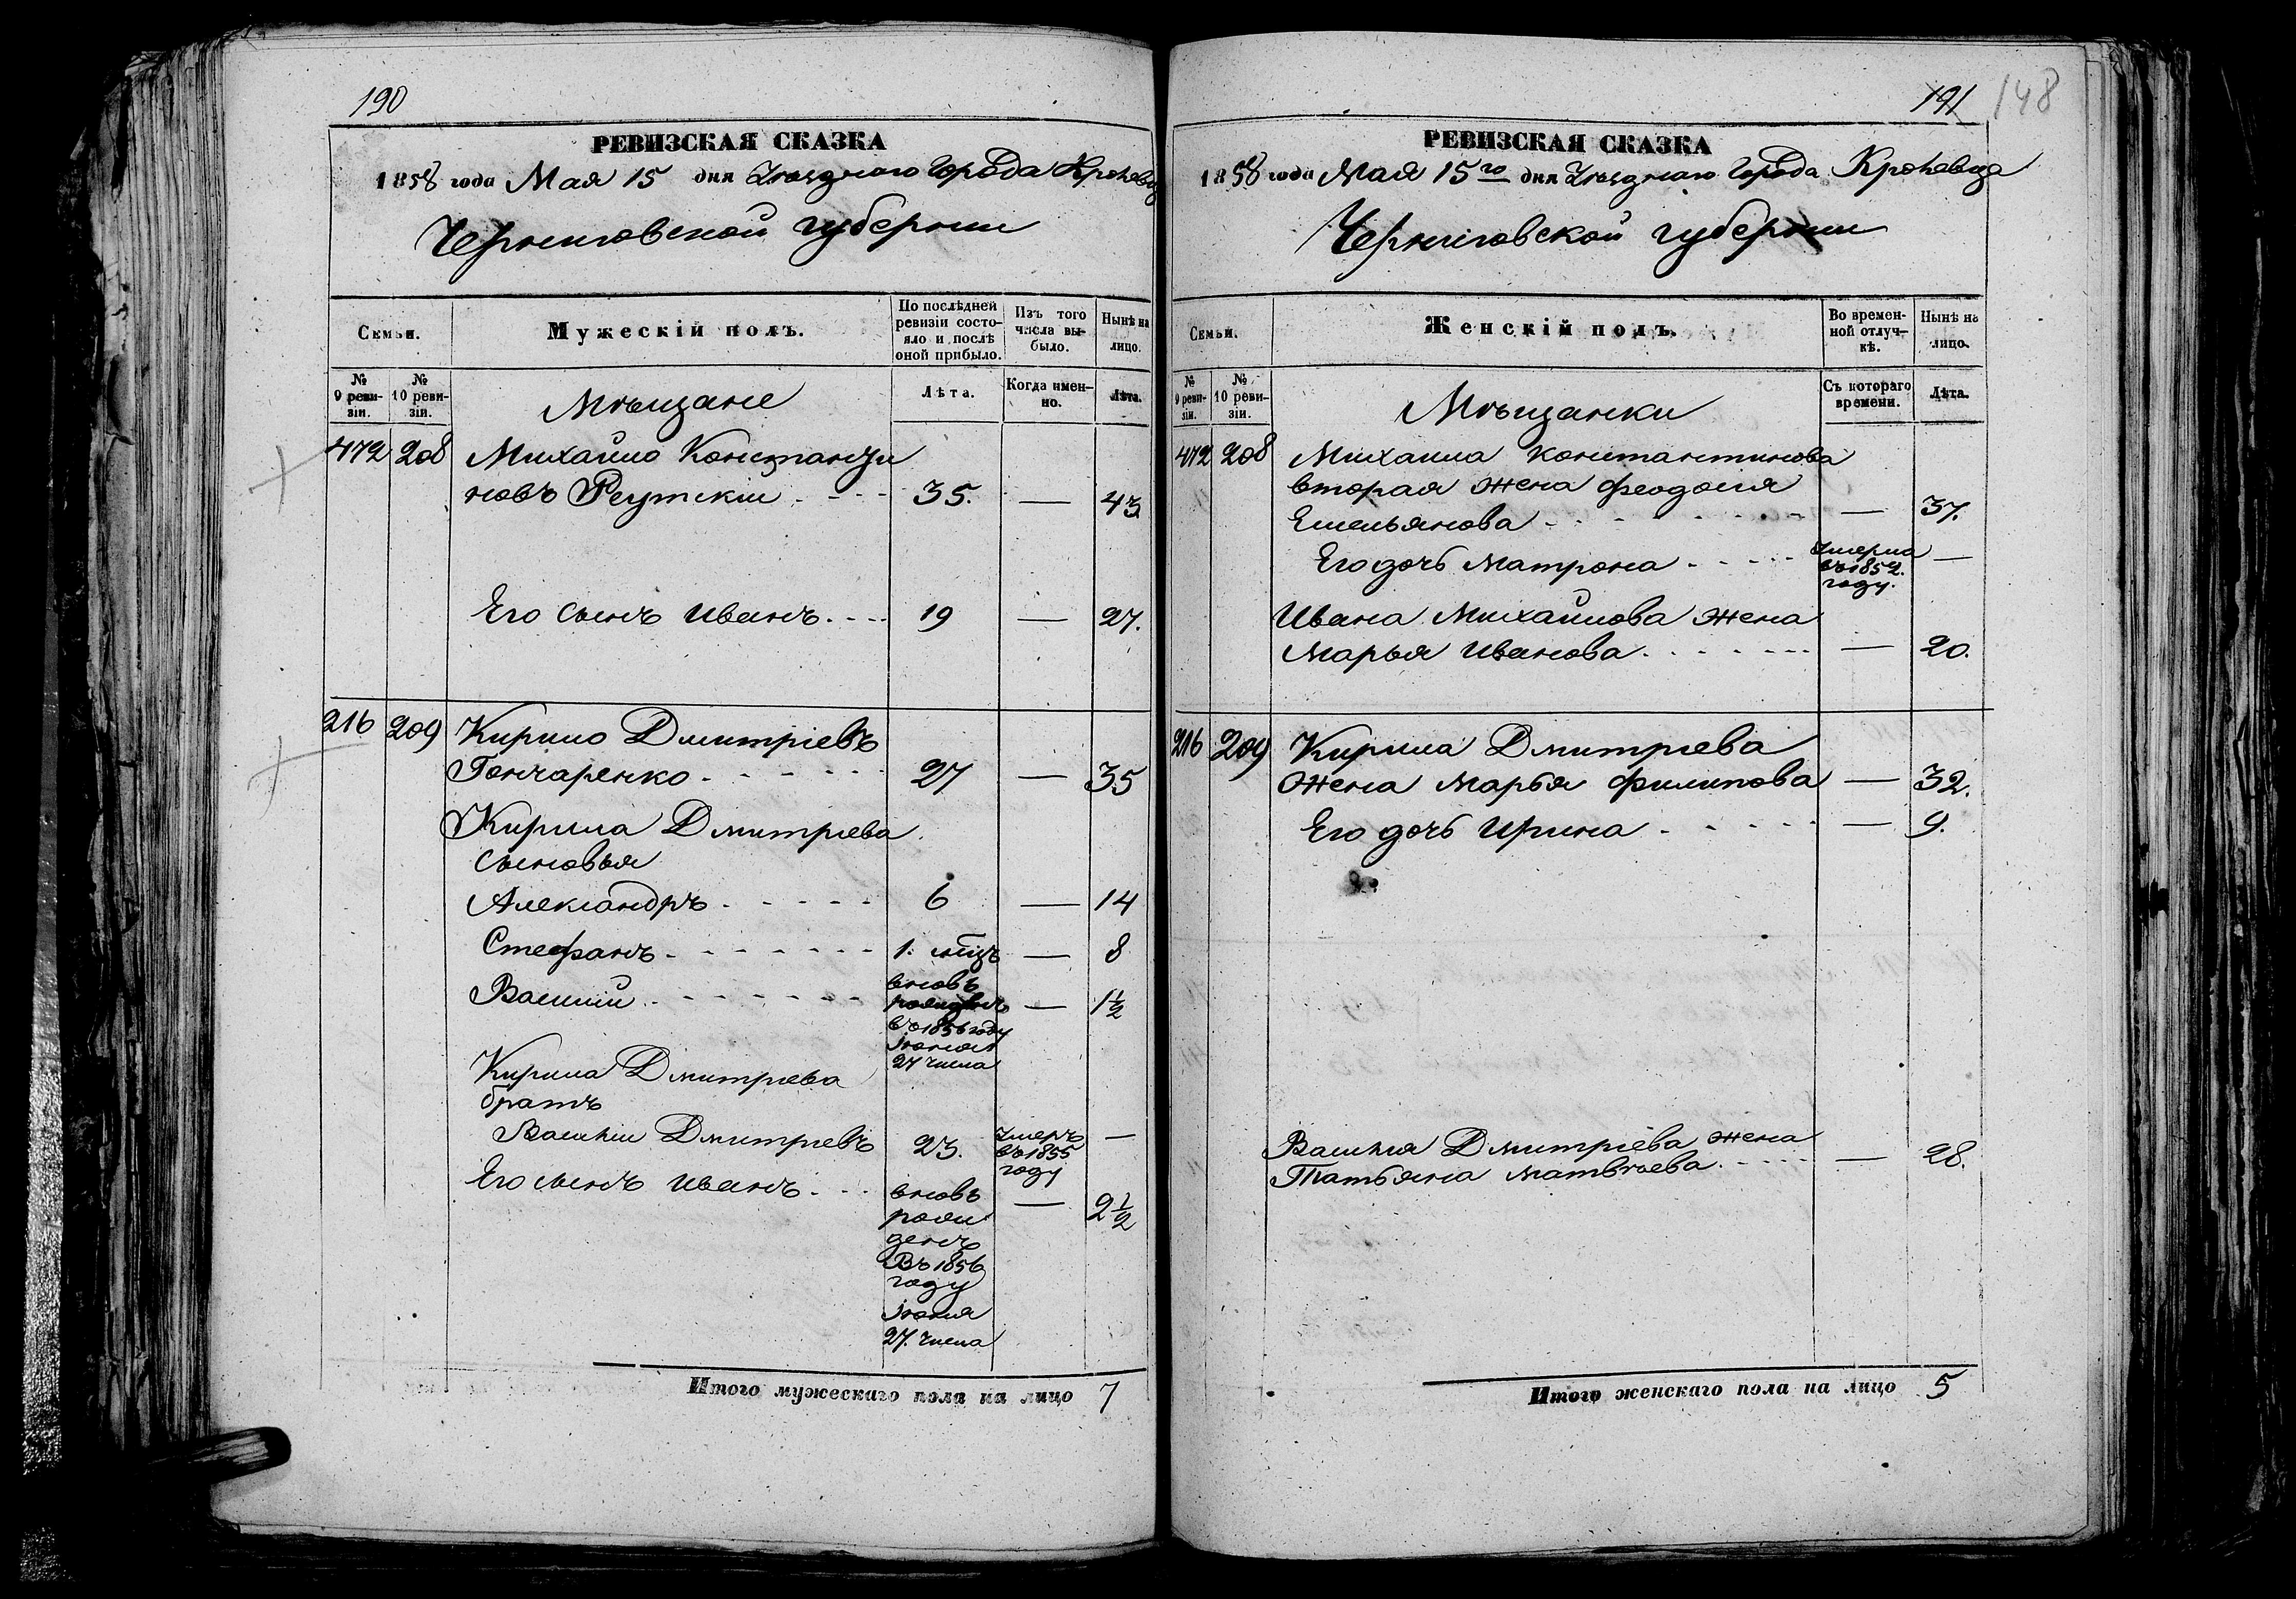 190
РЕВИЗСКАЯ СКАЗКА
1858 года Мая 15 дня Уѣзднаго города Кролевца
Черниговской губерніи
Семьи.
Мужескій полъ.
По послѣдней ревизіи состояло и послѣ оной прибыло.
Изъ того числа выбыло.
Нынѣ на лицо.
№ 9 ревизіи.
№ 10 ревизіи.
Мѣщане
Лѣта.
Когда именно.
Лѣта.
472 208 Михайло Константи
новъ Реутскій 35. — 43
Его сынъ Иванъ 19 — 27.
216 209 Кирило Дмитріевъ
Гончаренко 27 — 35
Кирила Дмитріева
сыновья
Александръ 6 — 14
Стефанъ 1. мѣцъ — 8
Василій вновь
рожденъ — 1½
въ 1856 году
Іюня
27 числа
Кирила Дмитріева
братъ
Василій Дмитріевъ 23. умеръ —
въ 1855
году
Его сынъ Иванъ вновь — 2½
рож
денъ
Въ 1856
году
Іюня
27. числа
Итого мужескаго пола на лицо 7
191 148
РЕВИЗСКАЯ СКАЗКА
1858 года Мая 15го дня Уѣзднаго города Кролевца
Черниговской губерніи
Семьи.
Женскій полъ.
Во временной отлучкѣ.
Нынѣ на лицо.
№ 9 ревизіи.
№ 10 ревизіи.
Мѣщанки
Съ котораго времени.
Лѣта.
472 208 Михаила Константинова
вторая жена Феодосія
Емельянова — 37.
Его дочь Матрона умерла —
въ 1852.
году.
Ивана Михайлова жена
Марья Иванова — 20.
216 209 Кирила Дмитріева
жена Марья Филипова — 32.
Его дочь Ирина — 9.
Василія Дмитріева жена
Татьяна Матвѣева — 28.
Итого женскаго пола на лицо 5